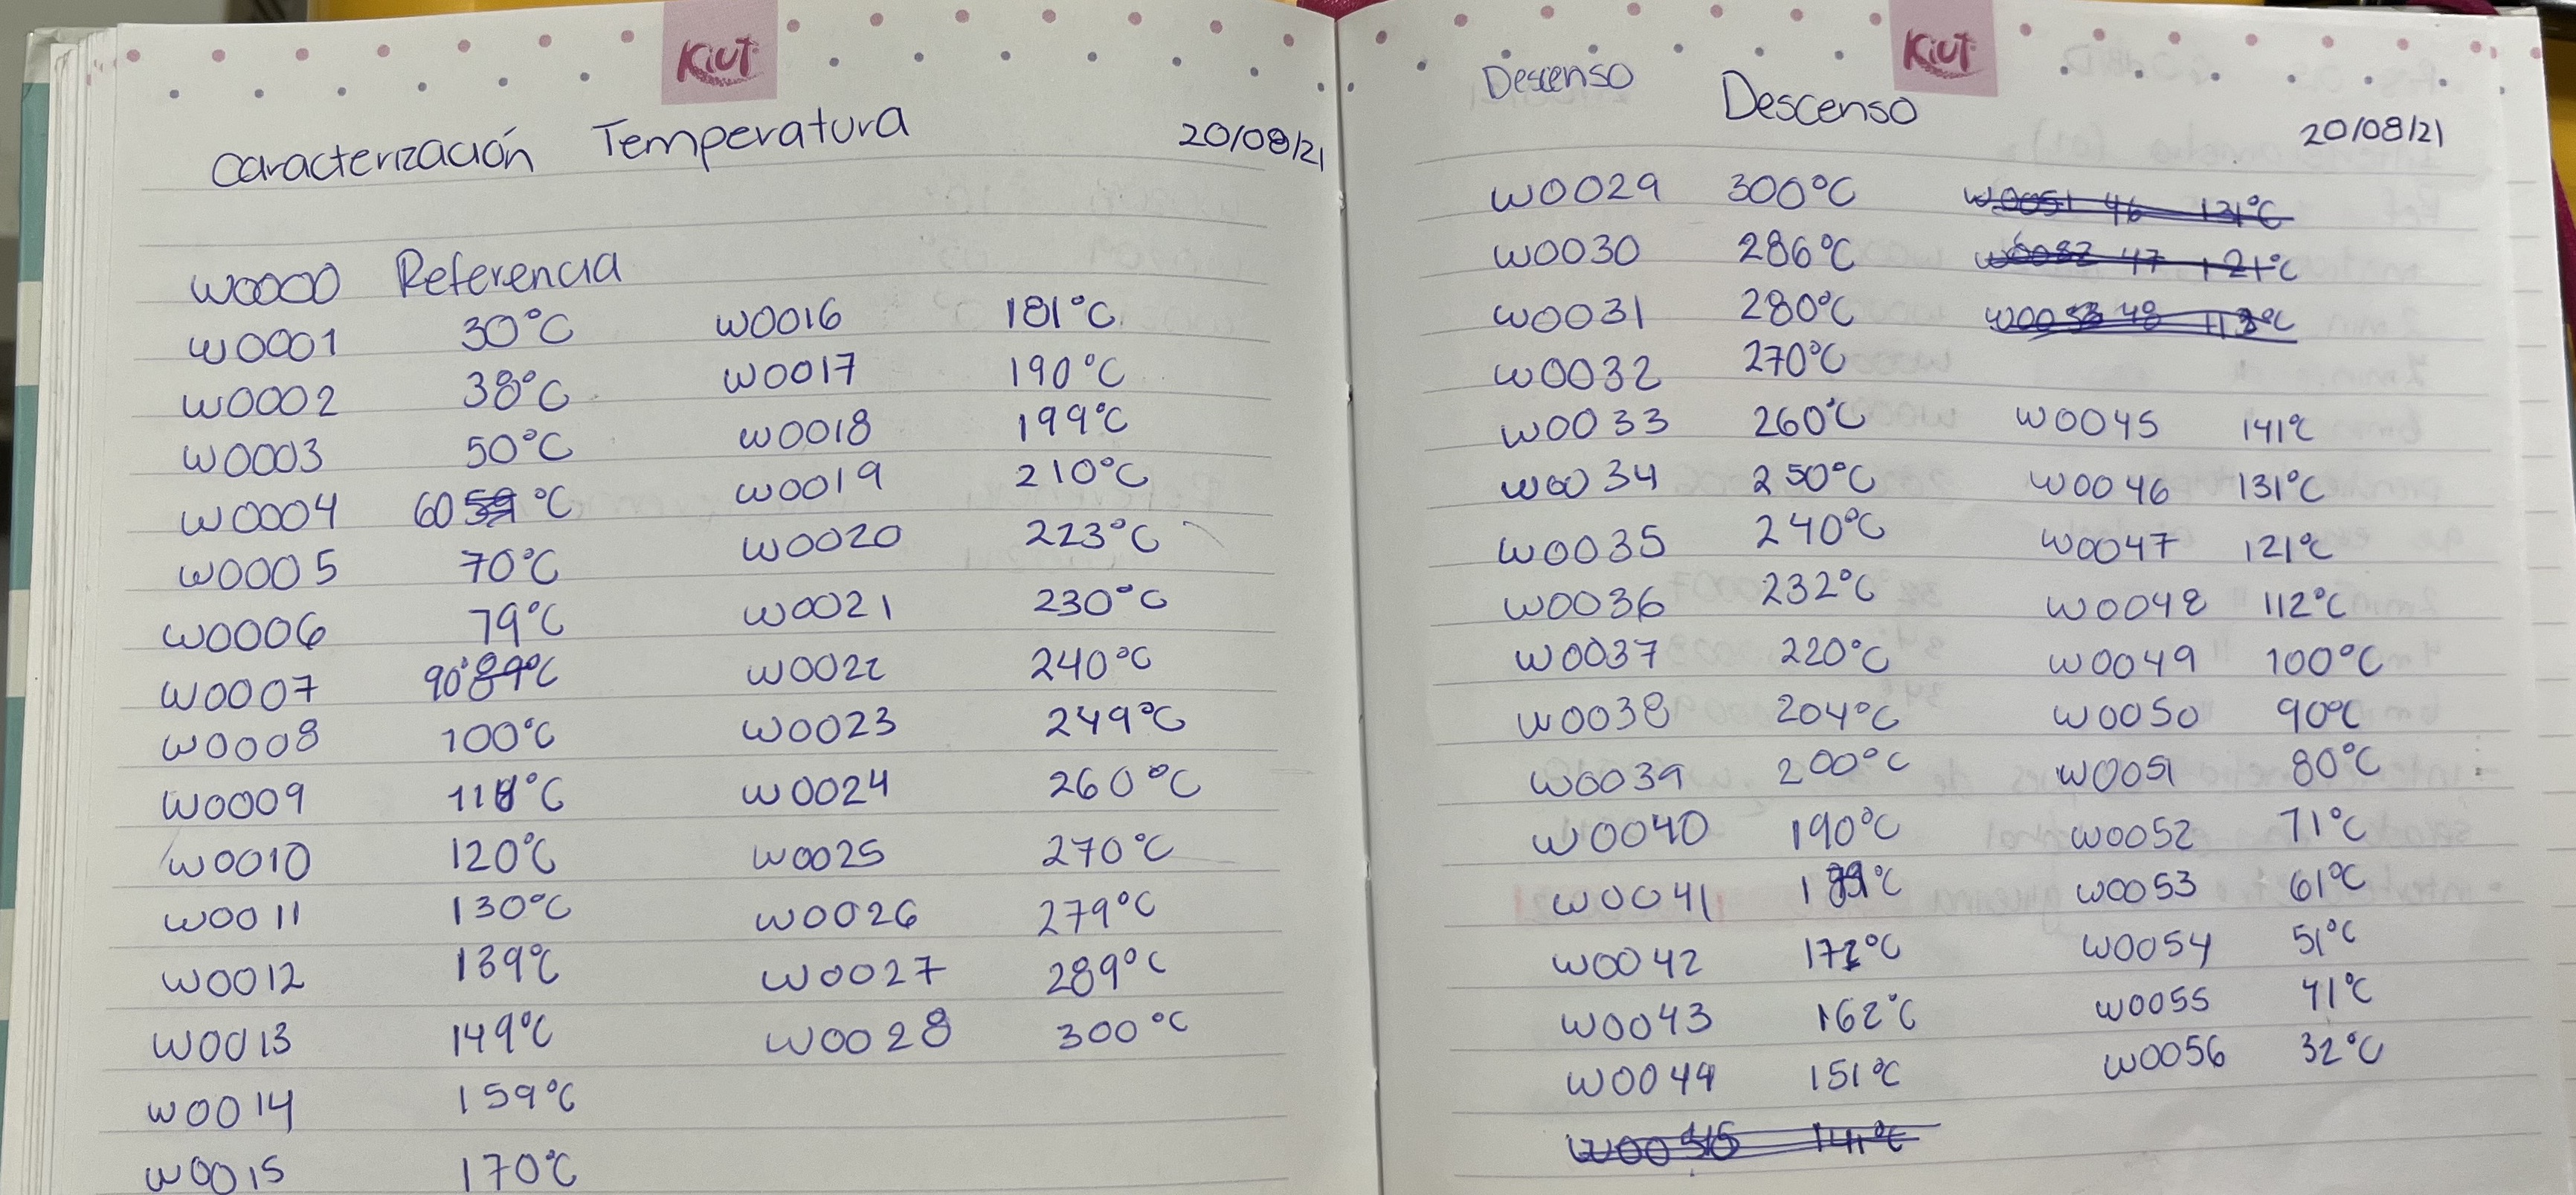 Kiut
Caracterización Temperatura 20/08/21
W0000 Referencia
W0001 30°C
W0002 38°C
W0003 50°C
W0004 60 59 °C
W0005 70°C
W0006 79°C
W0007 90° 89°C
W0008 100°C
W0009
W0010 120°C
W0011 130°C
W0012 139°C
W0013 149°C
W0014 159°C
W0015 170°C
W0016 181°C
W0017 190°C
W0018 199°C
W0019 210°C
W0020 223°C
W0021 230°C
W0022 240°C
W0023 249°C
W0024 260°C
W0025 270°C
W0026 279°C
W0027 289°C
W0028 300°C
Kiut
Descenso Descenso
20/08/21
W0029 300°C
W0030 286°C
W0031 280°C
W0032 270°C
W0033 260°C
W0034 250°C
W0035 240°C
W0036 232°C
W0037 220°C
W0038 204°C
W0039 200°C
W0040 190°C
W0041
W0042
W0043 162°C
W0044 151°C
141°C
W0051 46 131°C
47 121°C
48
W0045 141°C
W0046 131°C
W0047 121°C
W0048 112°C
W0049 100°C
W0050 90°C
W0051 80°C
W0052 71°C
W0053 61°C
W0054 51°C
W0055 41°C
W0056 32°C